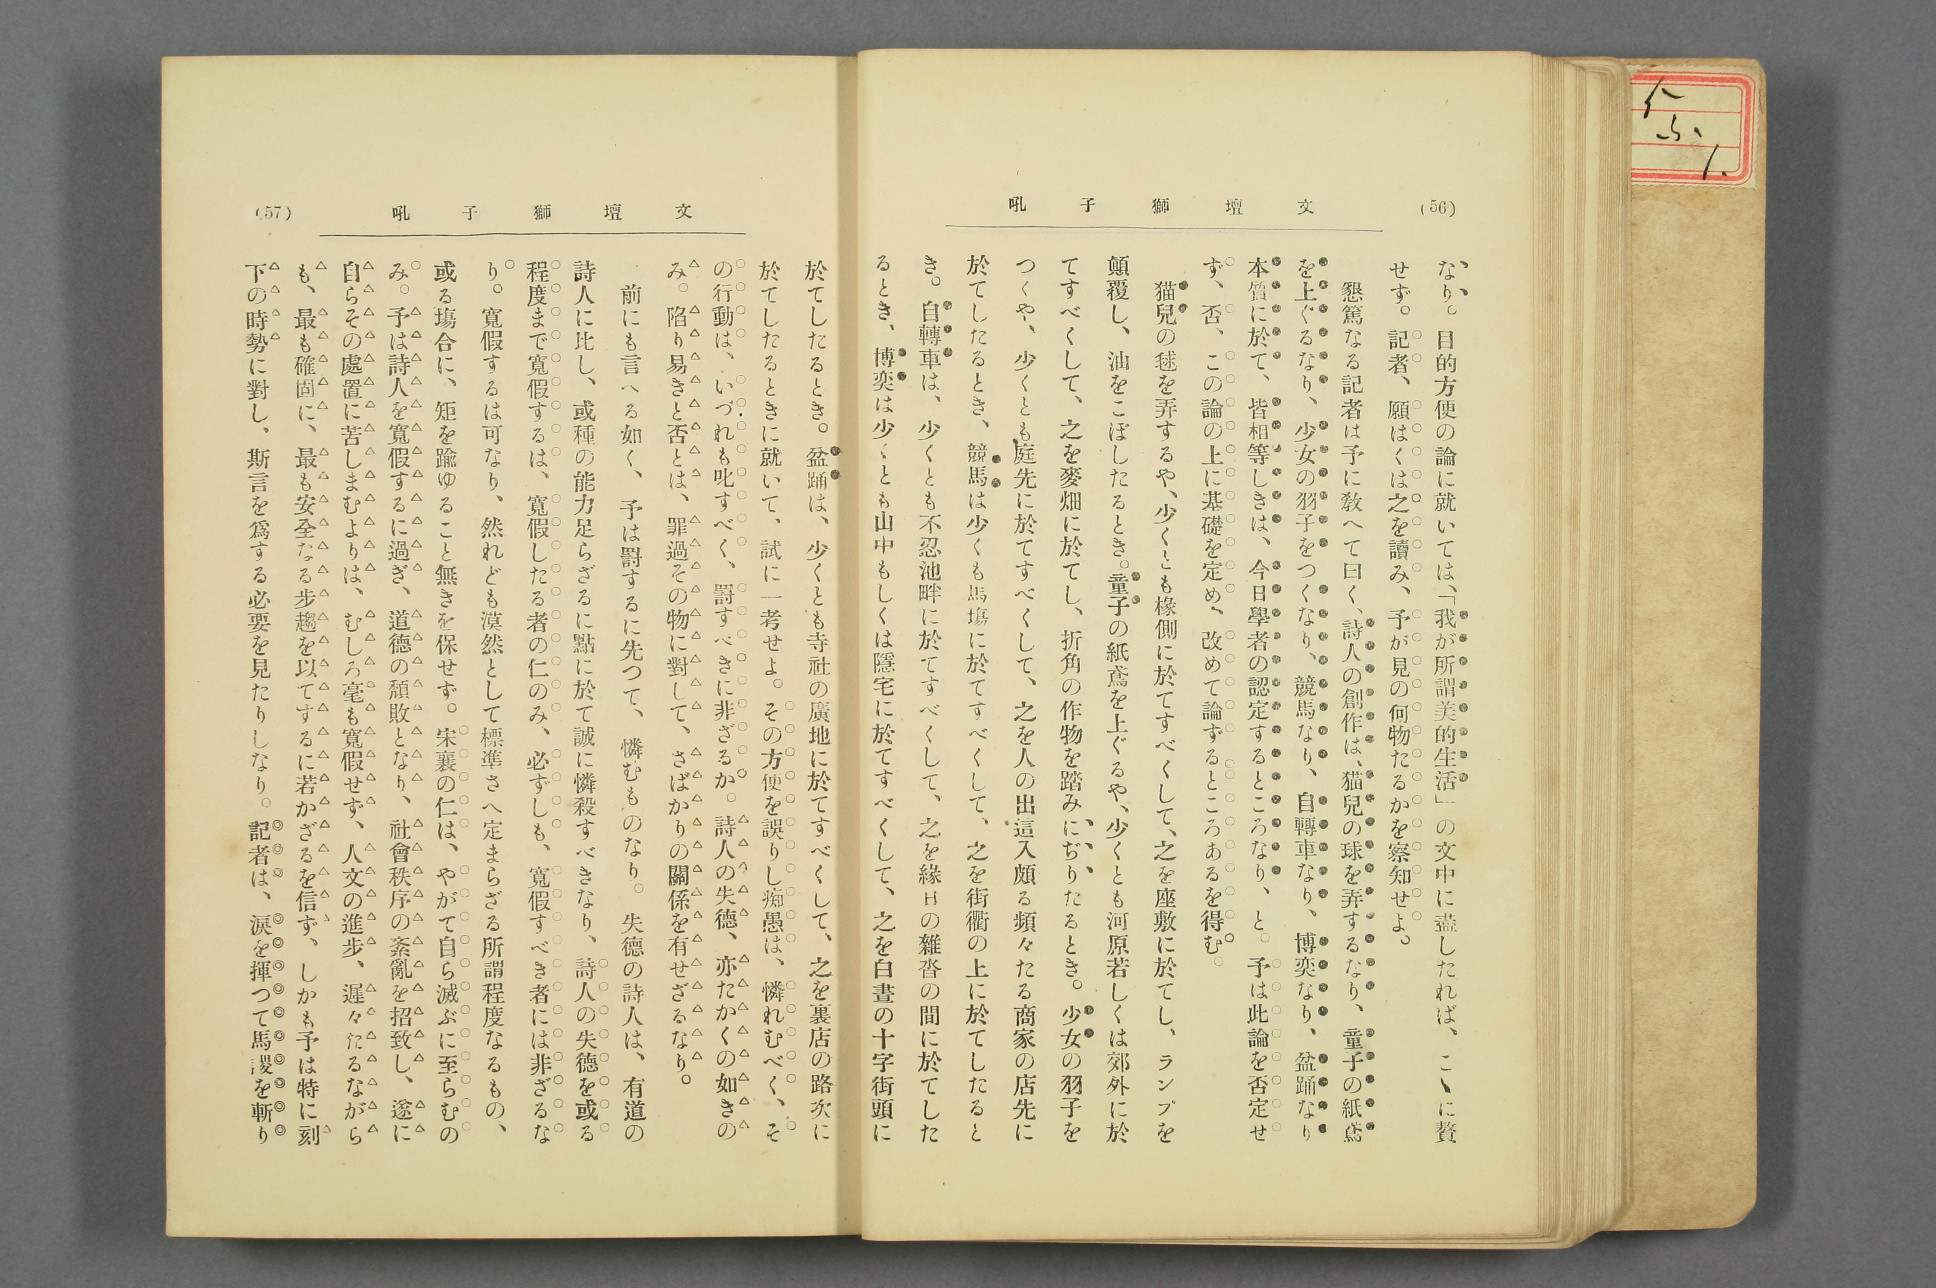 (56)
文壇獅子吼
なり。目的方便の論に就いては、「我が所謂美的生活」の文中に盡したれば、こゝに贅
せず。記者、願はくは之を讀み、予が見の何物たるかを察知せよ。
懇篤なる記者は予に敎へて曰く、詩人の創作は、猫兒の球を弄するなり、童子の紙鳶
を上ぐるなり、少女の羽子をつくなり、競馬なり、自轉車なり、博奕なり、盆踊なり
本質に於て、皆相等しきは、今日學者の認定するところなり、と。予は此論を否定せ
ず、否、この論の上に基礎を定め、改めて論ずるところあるを得む。
猫兒の毬を弄するや、少くとも椽側に於てすべくして、之を座敷に於てし、ランプを
顛覆し、油をこぼしたるとき。童子の紙鳶を上ぐるや、少くとも河原若しくは郊外に於
てすべくして、之を麥畑に於てし、折角の作物を踏みにぢりたるとき。少女の羽子を
つくや、少くとも庭先に於てすべくして、之を人の出這入頗る頻々たる商家の店先に
於てしたるとき、競馬は少くも馬塲に於てすべくして、之を街衢の上に於てしたると
き。自轉車は、少くとも不忍池畔に於てすべくして、之を緣日の雜沓の間に於てした
るとき、博奕は少くとも山中もしくは隱宅に於てすべくして、之を白晝の十字街頭に
文壇獅子吼
(57)
於てしたるとき。盆踊は、少くとも寺社の廣地に於てすべくして、之を裏店の路次に
於てしたるときに就いて、試に一考せよ。その方便を誤りし痴愚は、憐れむべく、そ
の行動は、いづれも叱すべく、罸すべきに非ざるか。詩人の失德、亦たかくの如きの
み。陷り易きと否とは、罪過その物に對して、さばかりの關係を有せざるなり。
前にも言へる如く、予は罸するに先つて、憐むものなり。失德の詩人は、有道の
詩人に比し、或種の能力足らざるに點に於て誠に憐殺すべきなり、詩人の失德を或る
程度まで寬假するは、寬假したる者の仁のみ、必ずしも、寬假すべき者には非ざるな
り。寬假するは可なり、然れども漠然として標準さへ定まらざる所謂程度なるもの、
或る塲合に、矩を踰ゆること無きを保せず。宋襄の仁は、やがて自ら滅ぶに至らむの
み。予は詩人を寬假するに過ぎ、道德の頽敗となり、社會秩序の紊亂を招致し、遂に
自らその處置に苦しまむよりは、むしろ毫も寬假せず、人文の進步、遲々たるながら
も、最も確固に、最も安全なる步趨を以てするに若かざるを信ず、しかも予は特に刻
下の時勢に對し、斯言を爲する必要を見たりしなり。記者は、淚を揮つて馬謖を斬り